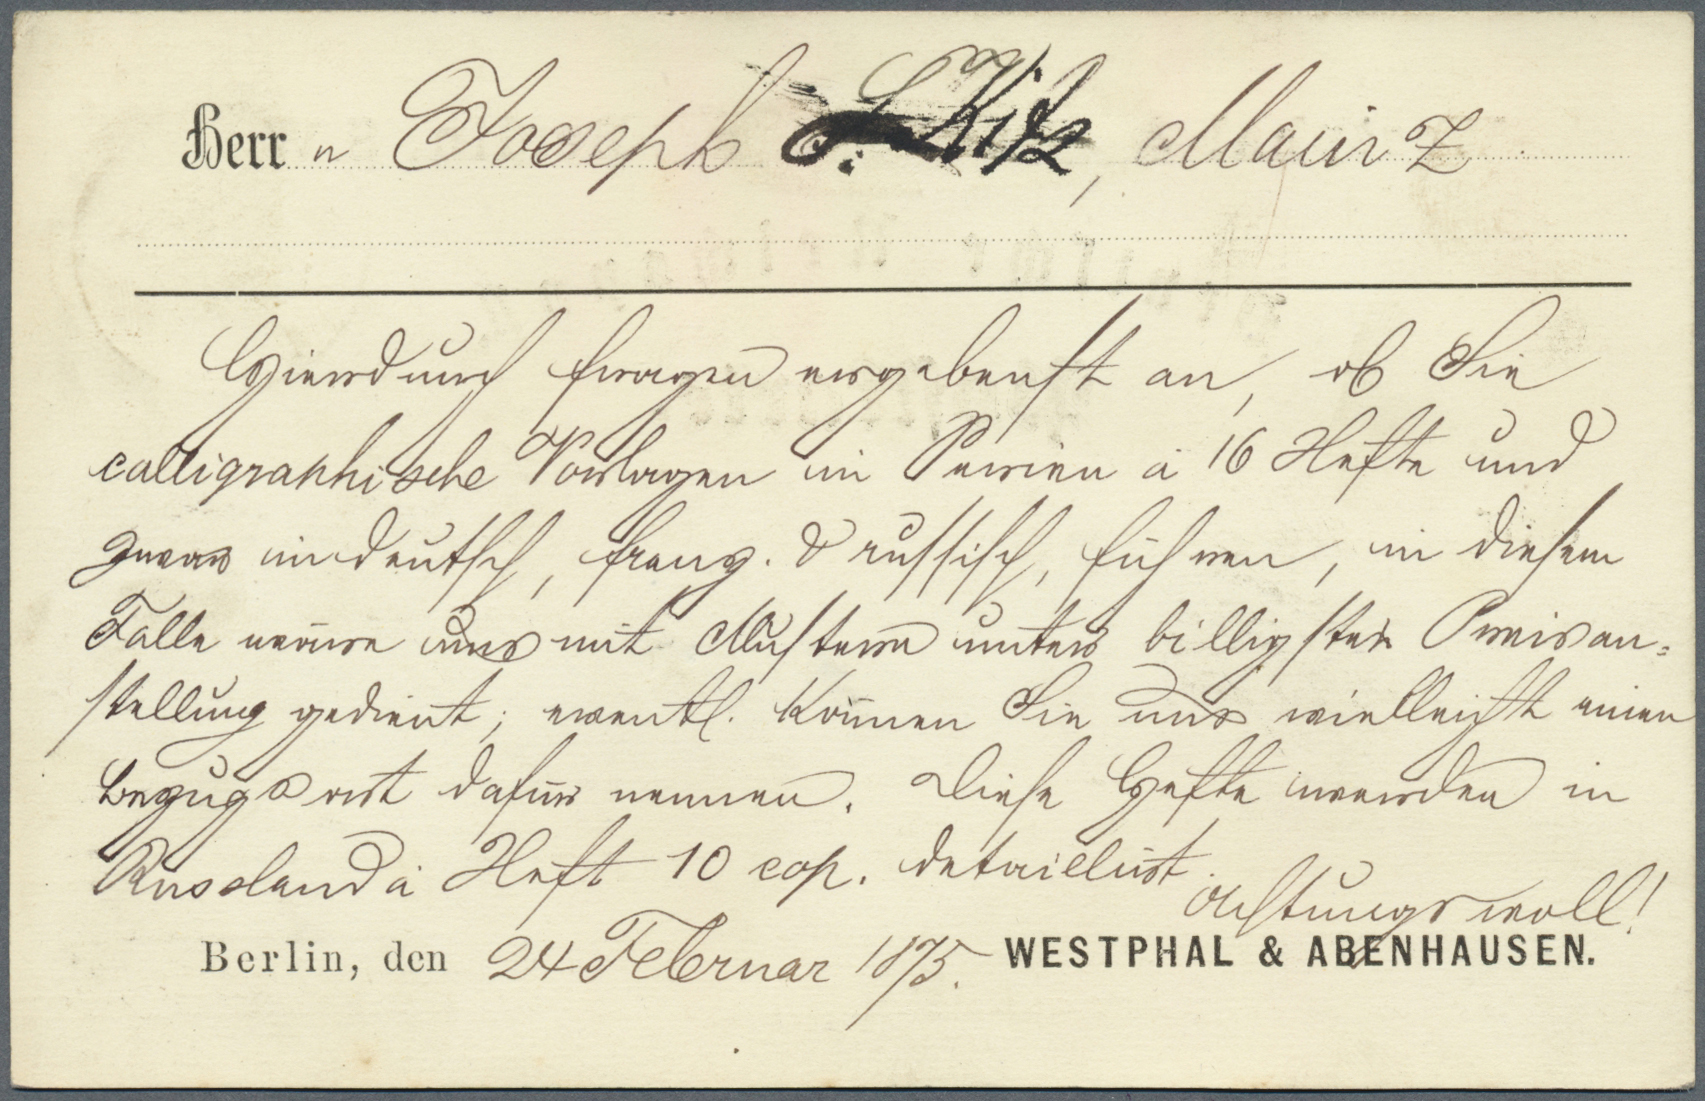 Herrn Joseph Kitz, Mainz
Hierdurch fragen ergebenst an, ob Sie
calligraphische Vorlagen in Serien à 16 Hefte und
zwar in deutsch, franz. & russisch, führen, in diesem
Falle wäre uns mit Mustern unter billigster Preisan-
stellung gedient; eventl. können Sie uns vielleicht einen
Bezugsort dafür nennen. Diese Hefte werden in
Russland à Heft 10 cop. detaillirt.
Achtungsvoll!
Berlin, den 24 Februar 1875. WESTPHAL & ABENHAUSEN.